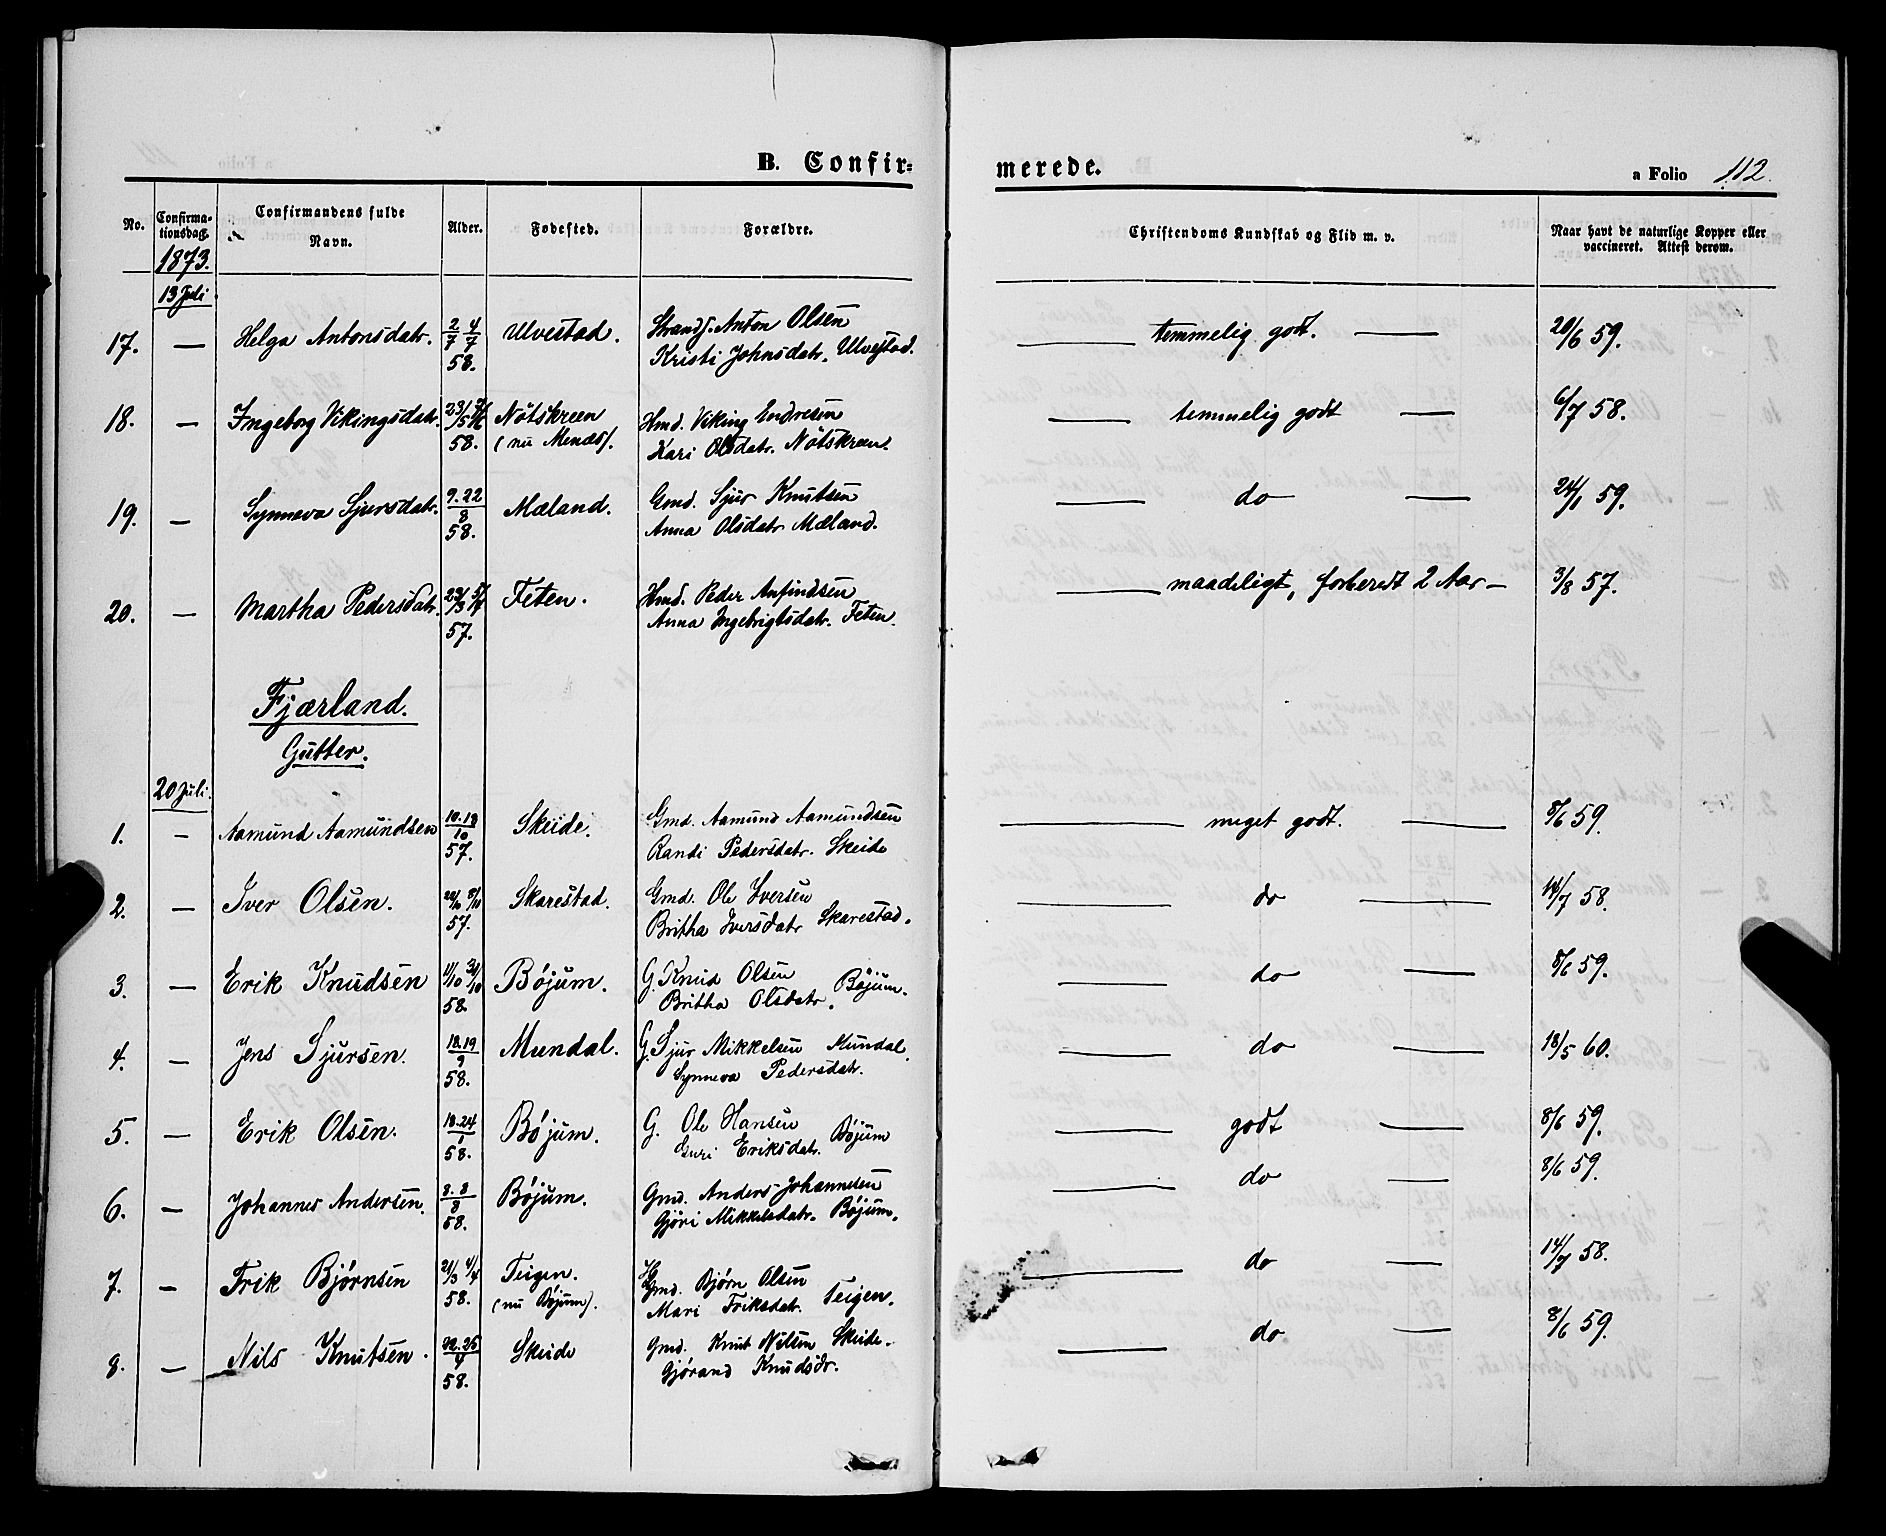 B. Confir=
merede.
a Folio 112.
No.
Confirma-
tionsdag.
Confirmandens fulde
Navn.
Alder.
Fødested.
Forældre.
Christendoms Kundskab og Flid m. v.
Naar havt de naturlige Kopper eller
vaccineret. Attest derom.
1873.
13 Juli
17. — Helga Antonsdatr. 2/7 4/7 58. Ulvestad. Strands. Anton Olsen
Kristi Johnsdatr. Ulvestad.
— temmelig godt. — 20/6 59.
18. — Ingeborg Vikingsdatr. 23/5 58. Nötskreen
(nu Menæs). Hmd. Viking Endresen
Kari Olsdatr. Nötskreen.
— temmelig godt — 6/7 58.
19. — Synneva Sjursdatr. 9.22/8 58. Mæland. Gmd. Sjur Knutsen
Anna Olsdatr Mæland.
— do — 24/1 59.
20. — Martha Pedersdatr. 57. Feten. Hmd. Peder Anfindsen
Anna Ingebrigtsdatr. Feten.
— maadeligt, forberedt 2 Aar — 3/8 57.
Fjærland.
Gutter.
20 Juli.
1. — Aamund Aamundsen 10.18/10 57. Skeide. Gmd. Aamund Aamundsen
Randi Pedersdatr. Skeide
— meget godt. — 8/6 59.
2. — Iver Olsen. 57. Skarestad. Gmd. Ole Iversen
Britha Iversdatr Skarestad.
— do — 14/7 58.
3. — Erik Knudsen 11/10 31/10 58. Bøjum. G. Knud Olsen
Britha Olsdatr. Bøjum.
— do — 8/6 59.
4. — Jens Sjursen. 58. Mundal. G. Sjur Mikkelsen Mundal.
Synneva Pedersdatr.
— do — 18/5 60.
5. — Erik Olsen. 18.24/1 58. Bøjum. G. Ole Hansen
Guri Eriksdatr. Bøjum
— godt — 8/6 59.
6. — Johannes Andersen. 8.8/8 58. Bøjum. Gmd. Anders Johannesen
Gjöri Mikkelsdatr. Bøjum.
— do — 8/6 59.
7. — Frik Bjørnsen 21/3 4/4 58. Teigen.
(nu Bøjum). Hmd. Bjørn Olsen
Mari Friksdatr. Teigen.
— do — 14/7 58.
8. — Nils Knutsen. 22.25/4 58. Skeide Gmd. Knut Nilsen Skeide.
Gjørand Knudsdr.
— do — 8/6 59.